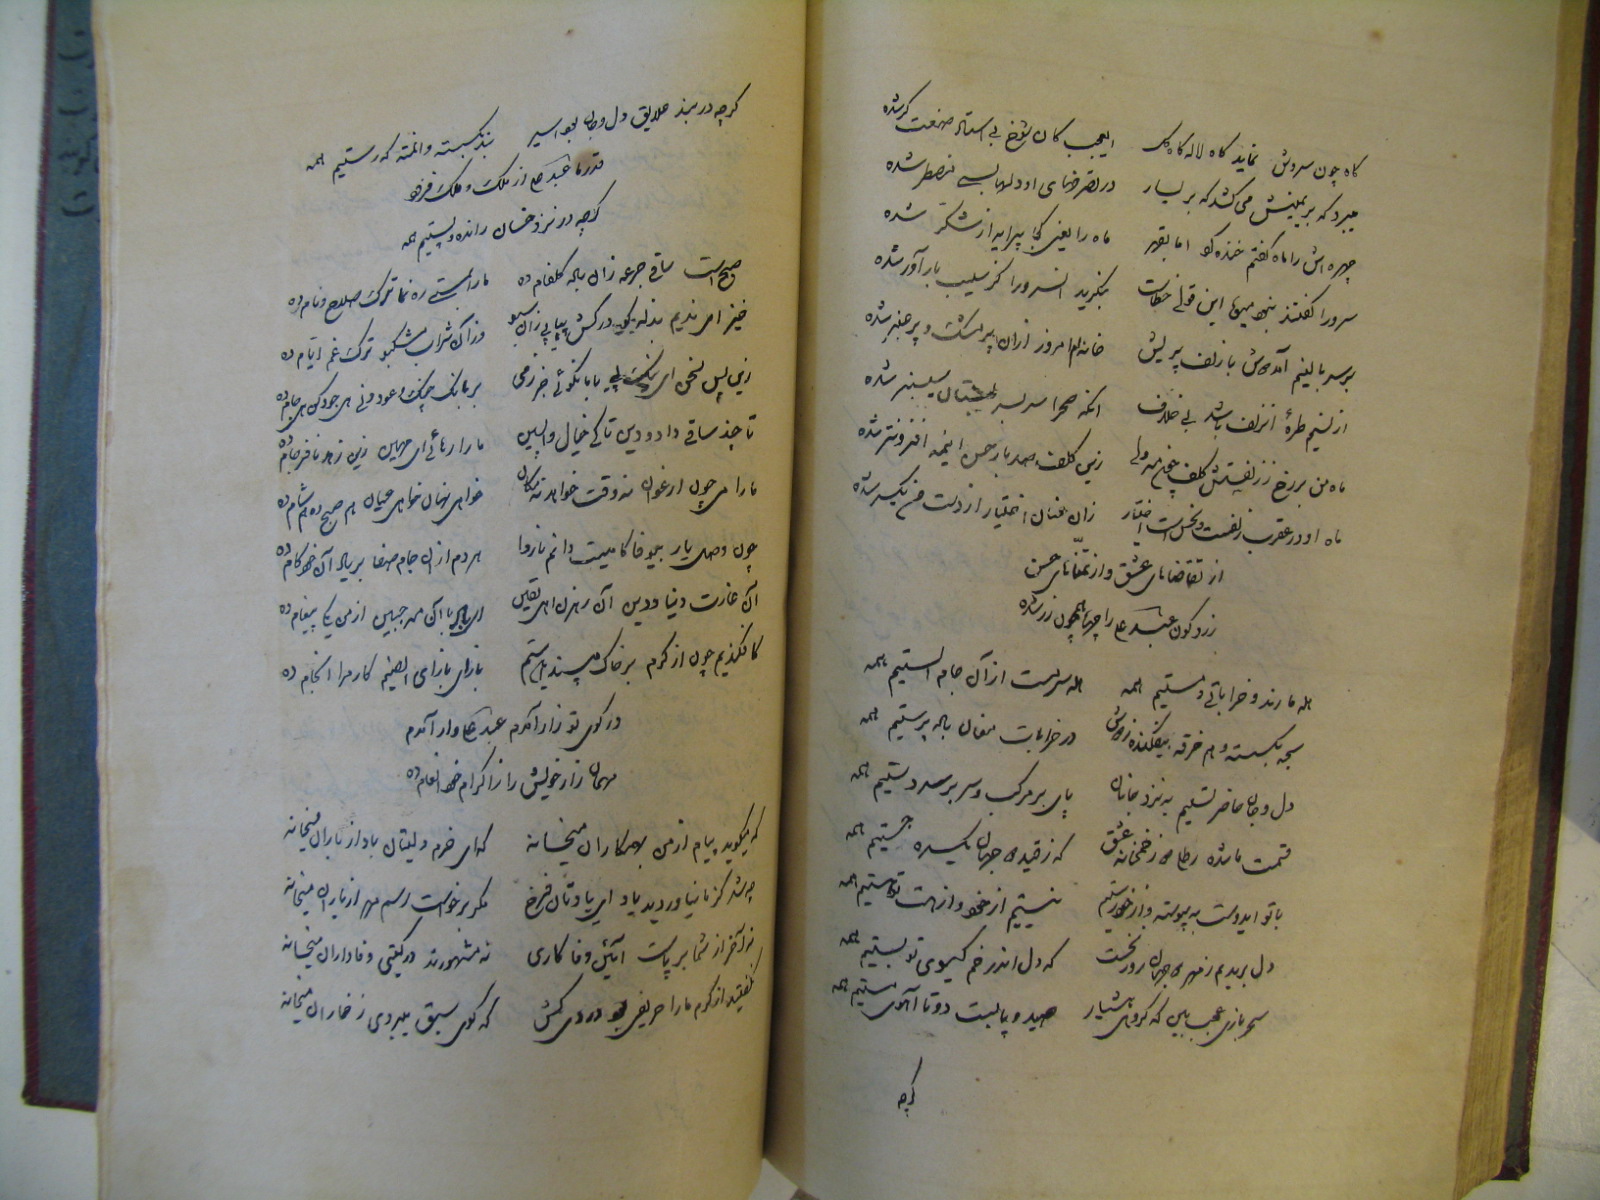 گاه چون سروش نماید گاه لاله گاه گل ایعجب کان شوخ بی استاد صنعت گر شده
میبرد گه بر یمینش می کشد گه بر یسار در تصرفهای او دلها بسی مضطر شده
چهره اش را ماه گفتم خنده کرد اما بقهر ماه را یعنی کجا پیرایه از شکر شده
سرو را گفتند میوها این قولی خطاست بنگرید آن سرو را کز سیب بارآور شده
بر سر بالینم آمد دوش با زلف پریش خانه ام امروز ازان پر مشک و پر عنبر شده
از نسیم طرهٔ آنزلف باشد بی خلاف اینکه صحرا سر بسر سیسنبر شده
ماه من بر رخ ز زلفینش کلف ولی زین کلف صد بار حسن اینمه افزونتر شده
ماه او در عقرب زلفست و نحس است اختیار زان عنان اختیار از دست من یکسر شده
از تقاضاهای عشق و از تمنّاهای حسن
زرد گون عبد علی را چهره همچون زر شده
ما رند و خراباتی و مستیم همه سر مست از آن جام الستیم همه
سبحه بگسسته و هم خرقه بیفکنده ز دوش در خرابات مغان باده پرستیم همه
دل و جان حاضر تسلیم به نزد جانان پای بر مرگ و سر بر سر دستیم همه
قسمت ما شده رطل می ز خمخانه عشق که ز قید جهان یکسره جستیم همه
با تو ایدوست به پیوسته و از خود رستیم نیستیم از خود و از هست تو هستیم همه
دل بریدیم ز مهر جهان روز نخست که دل اندر خم گیسوی تو بستیم همه
سحر بازی عجب بین که گروهی هشیار صید و پا بست دو تا آهوی مستیم همه
گرچه
گرچه در بند علایق دل و جان بود اسیر بند بگسسته و المنة که رستیم همه
قدر ما عبد علی از ملک و ملک فزود
گرچه در نزد خسان رانده و پستیم همه
صبح است ساقی جرعه زان باده گلفام ده ما را بمستی ره نما ترک صلاح و نام ده
خیز ای ندیم بذله گو در کش پیاپی زان سبو وز آن شراب مشکبو ترک غم ایام ده
زین پس سخن ای نیک پی با ما نگوئی جز ز می بر بانک چنگ و عود و نی هی جود کن هی جام ده
تا چند ساقی داد و دین تا کی خیال واپسین ما را رهائی ای مهین زین زهد نافرجام ده
ما را می چون ارغوان نه وقت خواهد نه مکان خواهی نهان خواهی عیان هم صبح ده هم شام ده
چون وصل یار بیوفا کامیست دانم ناروا هر دم از آن جام صفا بر یاد آن خود کام ده
آن غارت دنیا و دین آن رهزن اهل یقین ای باد با آن مه جبین از من یکی پیغام ده
کافکندیم چون از کرم بر خاک مپسند این ستم بازای بازای ایصنم کار مرا انجام ده
در کوی تو زار آمدم عبد علی وار آمدم
مهمان زار خویش را از اکرام خود انعام ده
که میگوید پیام از من به همکاران میخانه که ای خرم دلیتان باد از باران میخانه
چه شد کز ما نیاوردید یاد ای یادتان فرخ مگر برخواست رسم مهر از یاران میخانه
نه آخر از شما برپاست آئین وفا کاری نه مشهورند در گیتی وفاداران میخانه
نگفتید از کرم ما را حریفی بود دردی کش که گوی سبق میبردی ز خماران میخانه